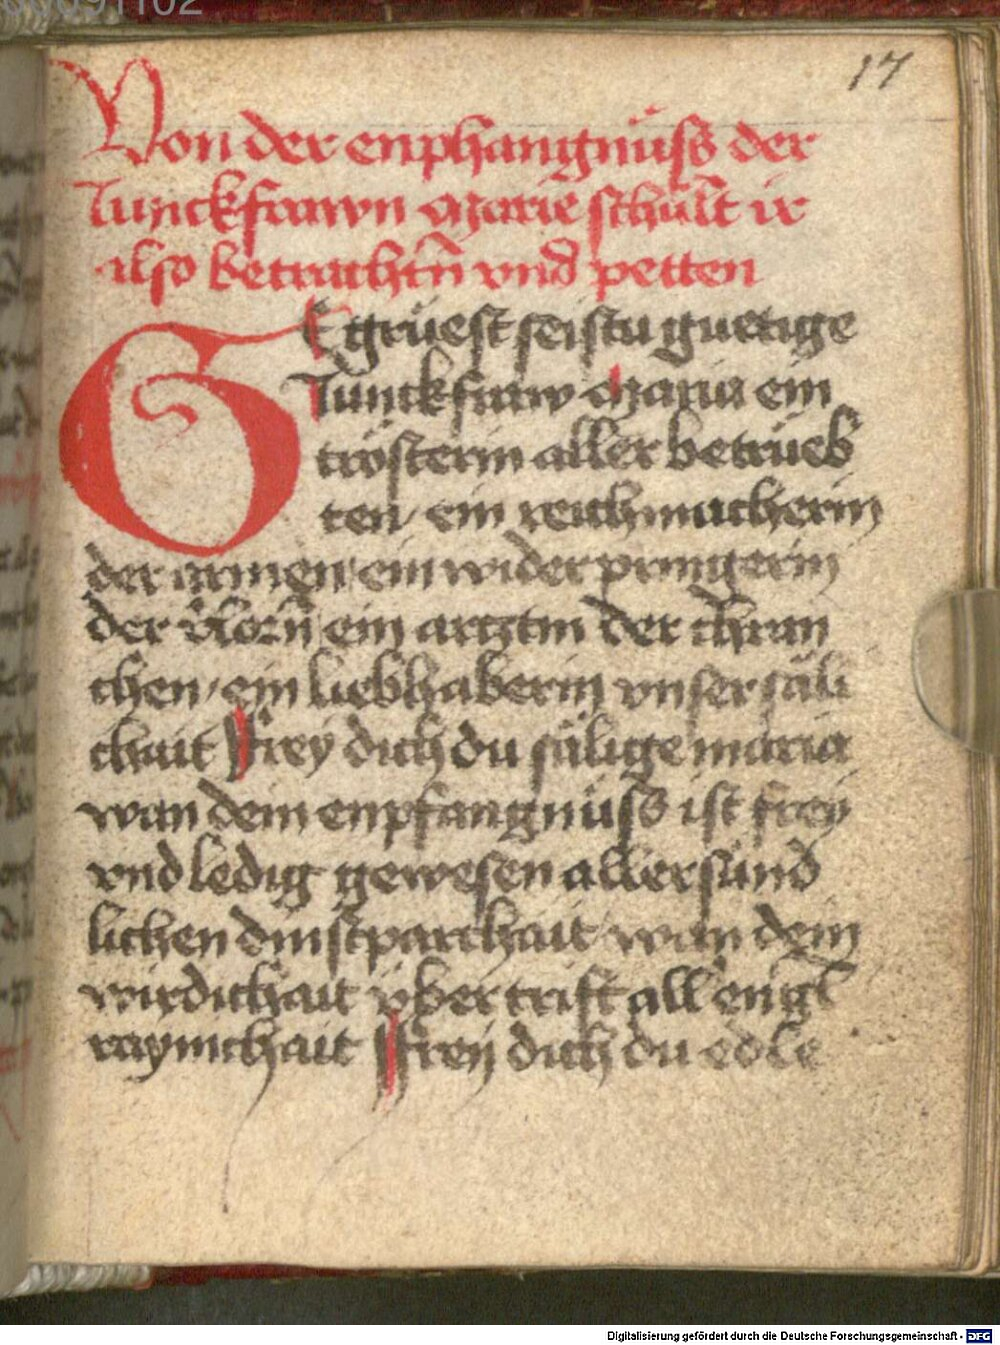 17
Von der enphangnüss der
Junckfrawn Marie schult ir
also betrachtn̄ vnd petten
GEgrüest seistu guetige
Junckfraw Maria ein
trösterin aller betrüeb
ten / ein reichmacherin
der armen / ein wider pringerin
der v̄lorn̄ ein artztin der chran
chen / ein liebhaberin vnser säli
chait Frey dich du sälige maria
wan dein enpfangnüss ist frey
vnd ledig gewesen aller sünd
lichen dinstparchait wan dein
wirdichait übertrift all engl
raynichait Frey dich du edle
Digitalisierung gefördert durch die Deutsche Forschungsgemeinschaft - DFG